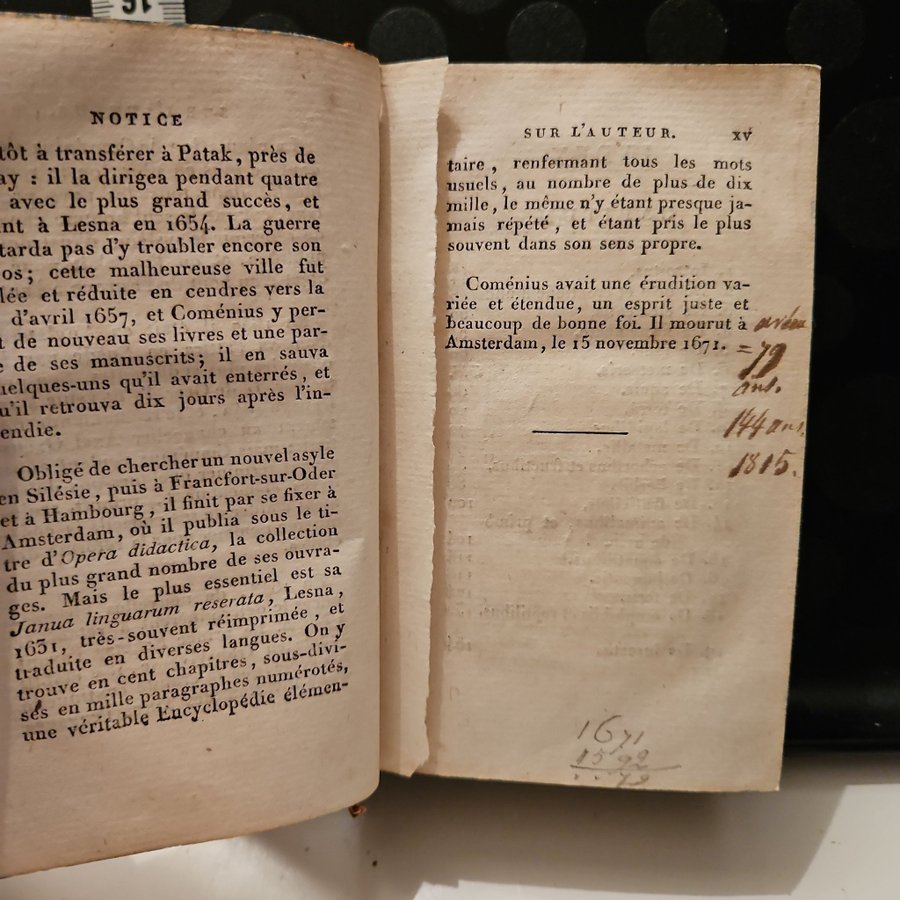 16
NOTICE
tôt à transférer à Patak, près de
ay : il la dirigea pendant quatre
avec le plus grand succès, et
nt à Lesna en 1654. La guerre
tarda pas d'y troubler encore son
os; cette malheureuse ville fut
lée et réduite en cendres vers la
d'avril 1657, et Coménius y per-
t de nouveau ses livres et une par-
e de ses manuscrits; il en sauva
uelques-uns qu'il avait enterrés, et
u'il retrouva dix jours après l'in-
endie.
Obligé de chercher un nouvel asyle
en Silésie, puis à Francfort-sur-Oder
et à Hambourg, il finit par se fixer à
Amsterdam, où il publia sous le ti-
tre d'Opera didactica, la collection
du plus grand nombre de ses ouvra-
ges. Mais le plus essentiel est sa
Janua linguarum reserata, Lesna,
1631, très-souvent réimprimée, et
traduite en diverses langues. On y
trouve en cent chapitres, sous-divi-
sés en mille paragraphes numérotés,
une véritable Encyclopédie élémen-
SUR L'AUTEUR. xv
taire, renfermant tous les mots
usuels, au nombre de plus de dix
mille, le même n'y étant presque ja-
mais répété, et étant pris le plus
souvent dans son sens propre.
Coménius avait une érudition va-
riée et étendue, un esprit juste et
beaucoup de bonne foi. Il mourut à
Amsterdam, le 15 novembre 1671.
= 79
ans.
144 ans.
1815.
1671
1592
79